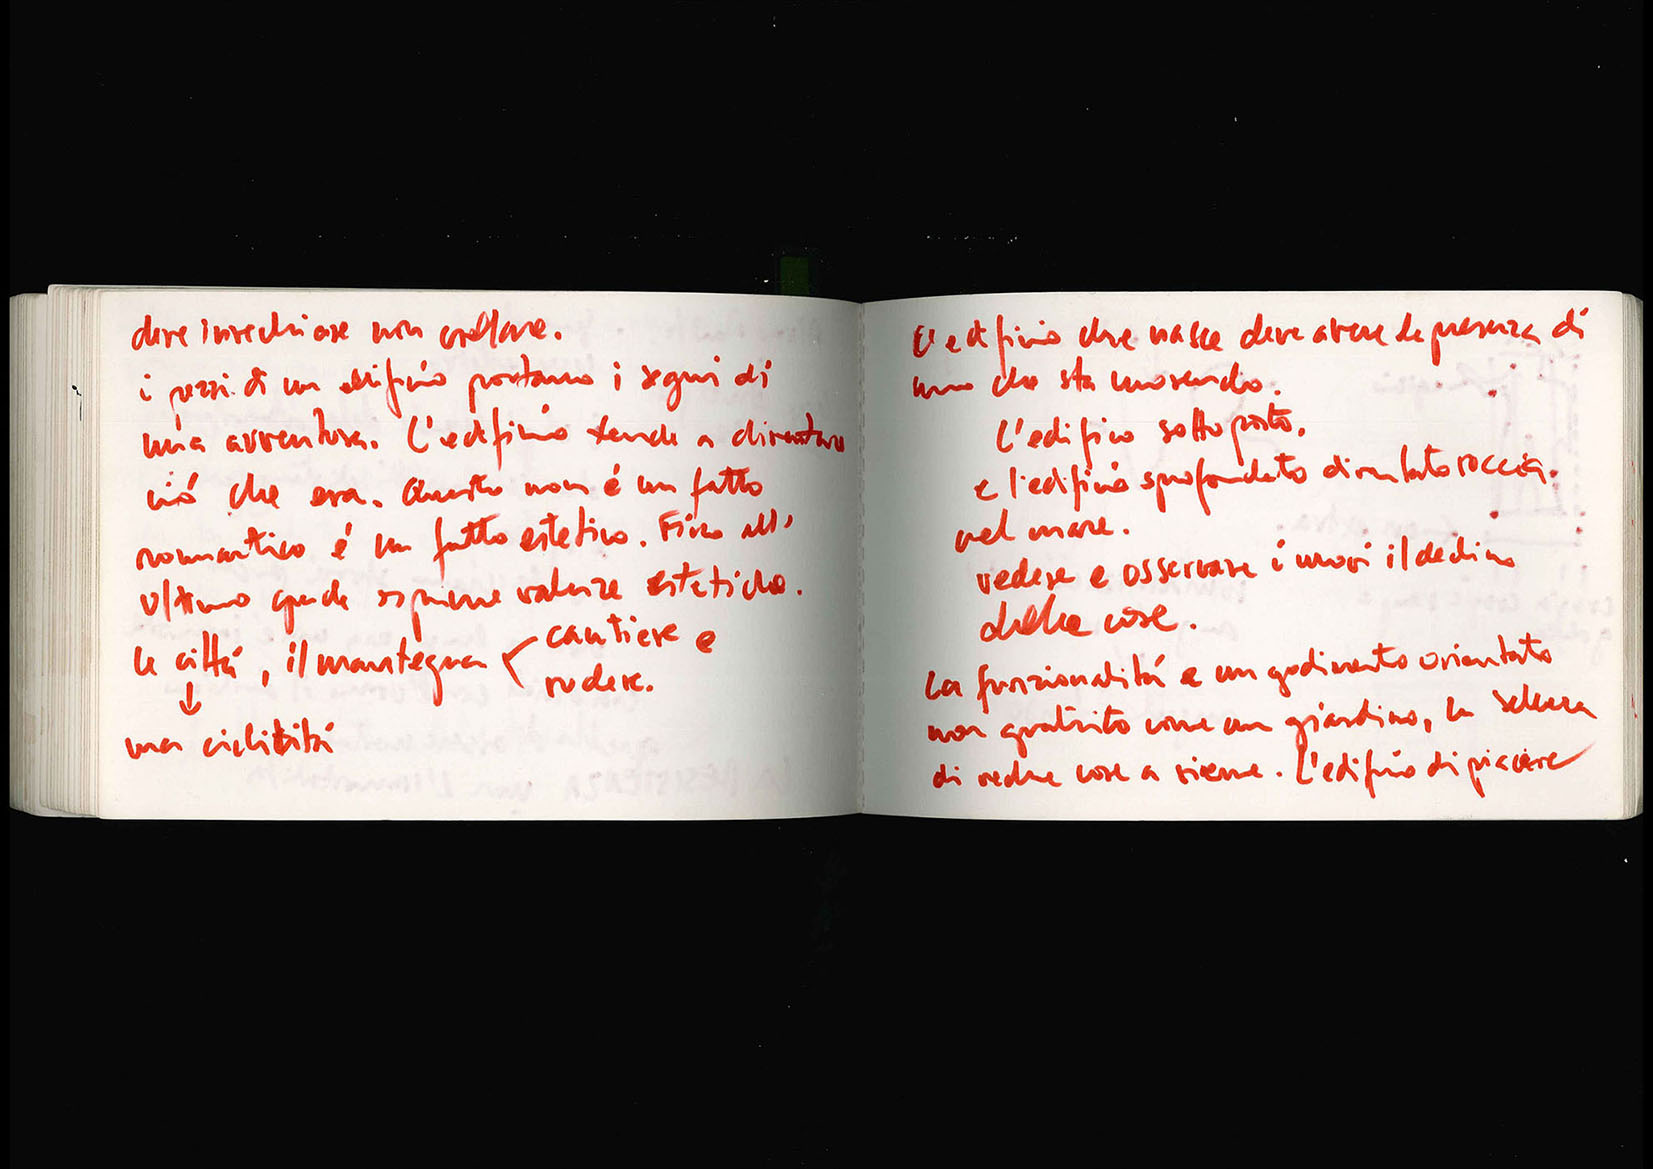 deve invecchiare non crollare.
i pezzi di un edificio portano i segni di
una avventura. L'edificio tende a diventare
ciò che era. Questo non é un fatto
romantico é un fatto estetico. Fino all'
ultimo esprime valenze estetiche.
la città, il mantegna cantiere e
rudere.
↓
una ciclicità
L'edificio che nasce deve avere la presenza di
uno che sta morendo.
L'edificio sottoposto.
e l'edificio sprofondato diventato roccia.
nel mare.
vedere e osservare i nuovi il declino
delle cose.
La funzionalitá e un godimento orientato
non gratuito come un giardino, la
di cose a . L'edificio di piacere